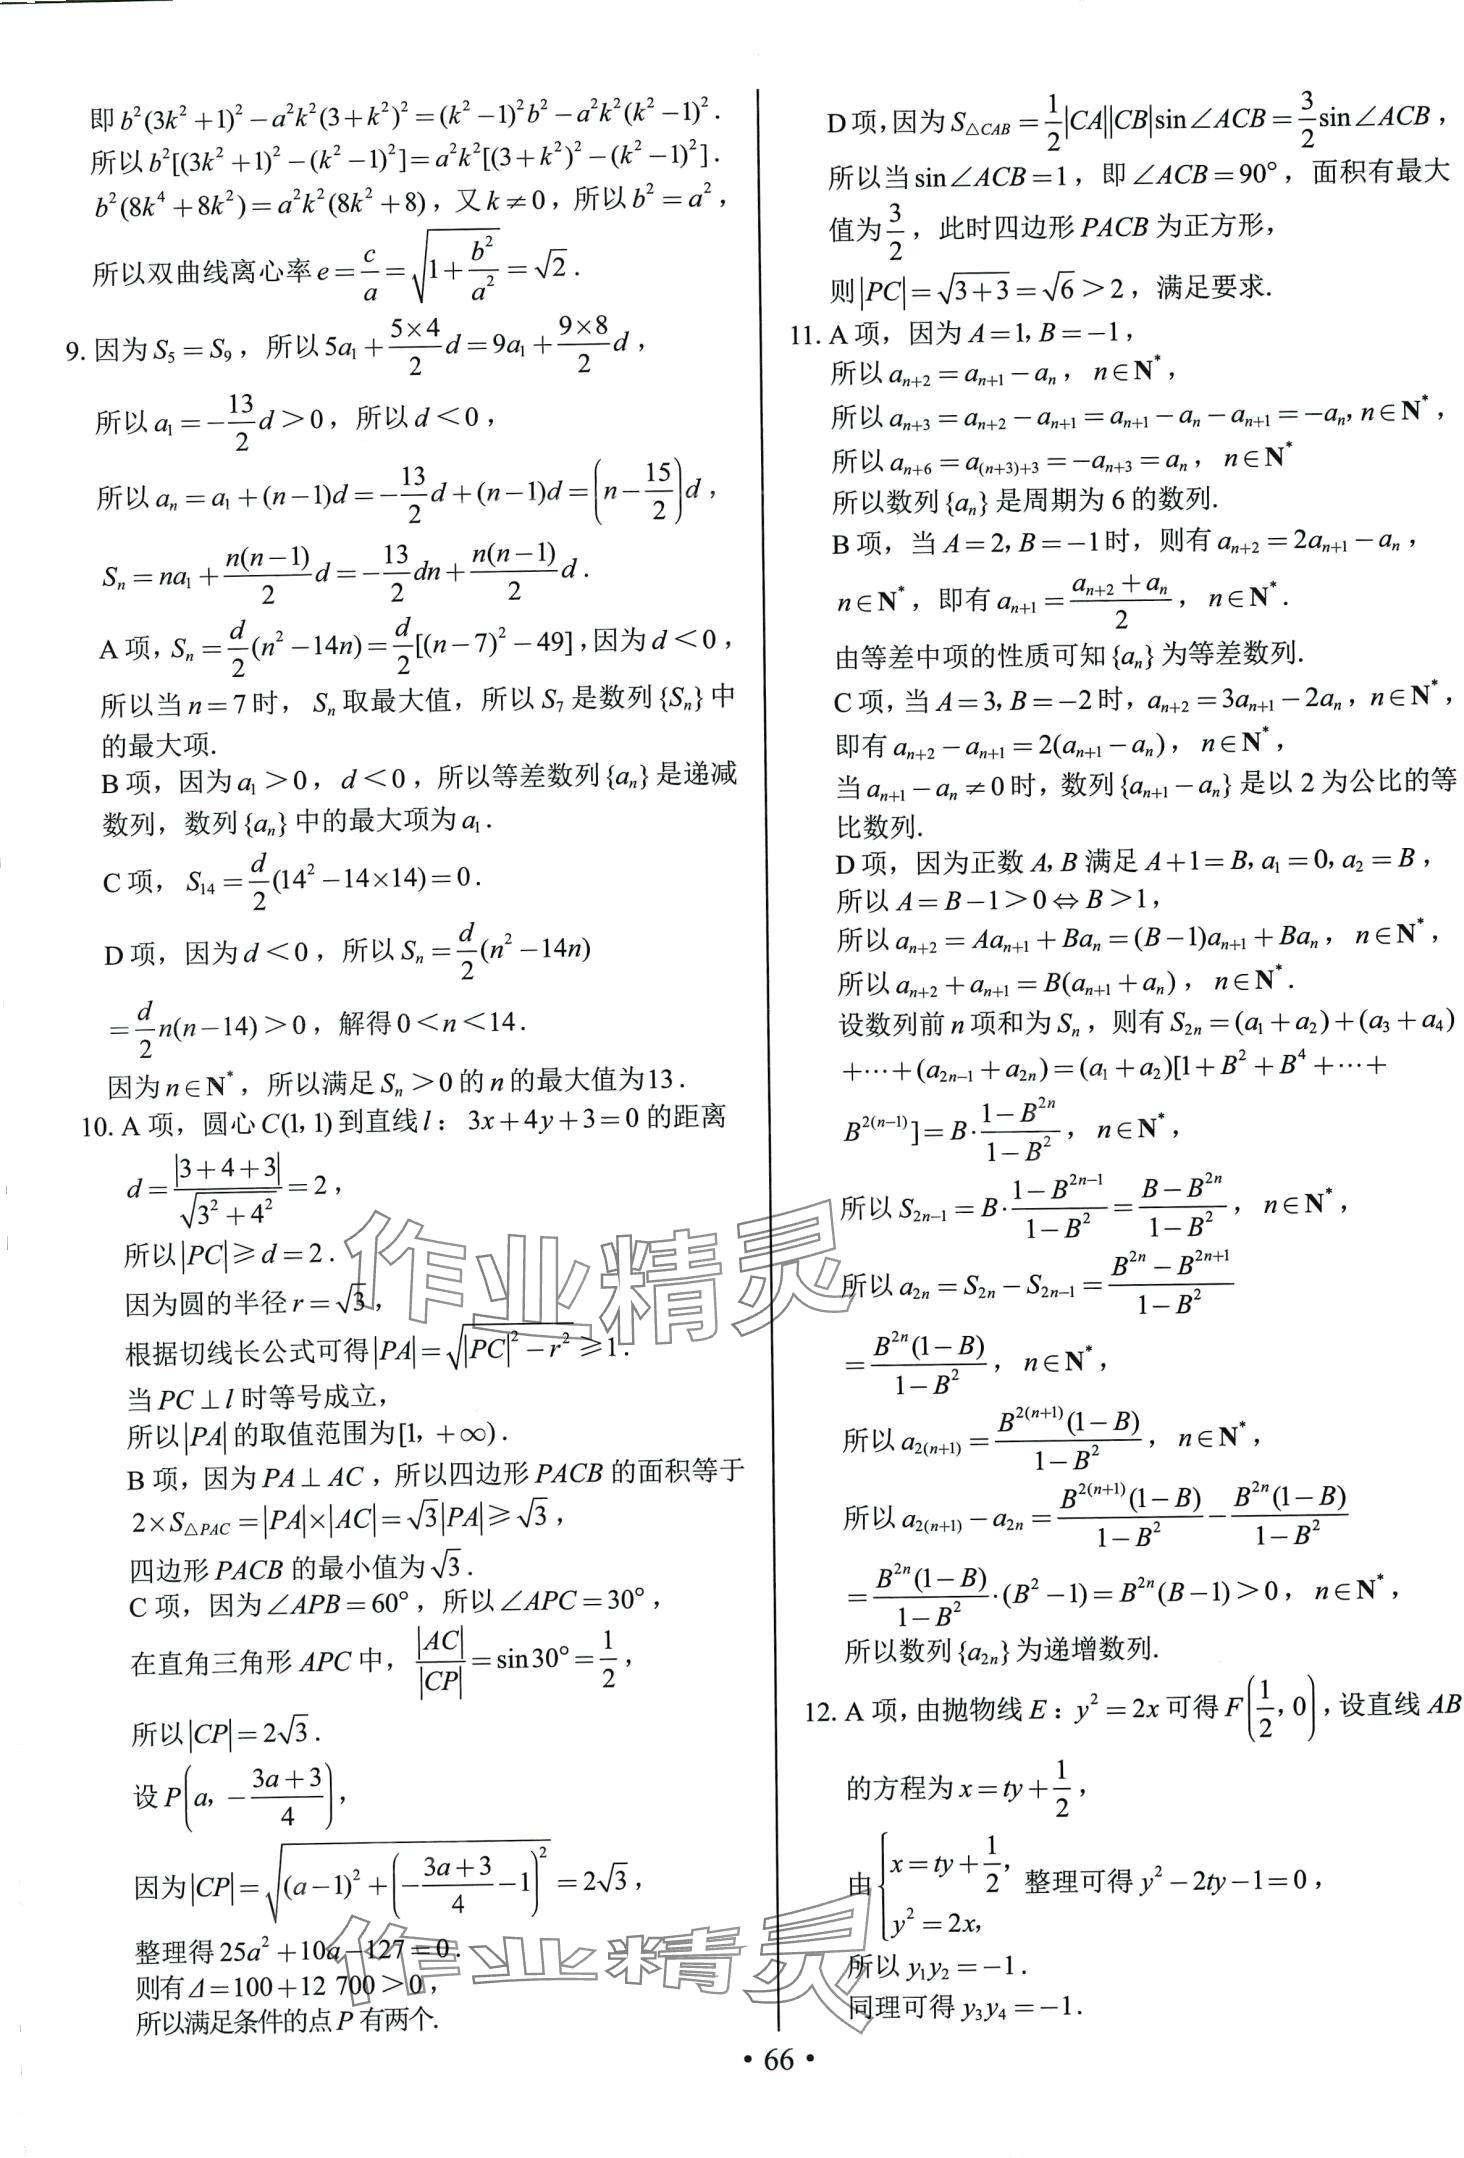 即 b²(3k²+1)²−a²k²(3+k²)²=(k²−1)²b²−a²k²(k²−1)².
所以 b²[(3k²+1)²−(k²−1)²]=a²k²[(3+k²)²−(k²−1)²].
b²(8k⁴+8k²)=a²k²(8k²+8), 又 k≠0, 所以 b²=a²,
所以双曲线离心率 e=c/a=√(1+b²/a²)=√2.
9. 因为 S₅=S₉, 所以 5a₁+(5×4)/2 d=9a₁+(9×8)/2 d,
所以 a₁=−13/2 d>0, 所以 d<0,
所以 aₙ=a₁+(n−1)d=−13/2 d+(n−1)d=(n−15/2)d,
Sₙ=na₁+n(n−1)/2 d=−13/2 dn+n(n−1)/2 d.
A 项, Sₙ=d/2(n²−14n)=d/2[(n−7)²−49], 因为 d<0,
所以当 n=7 时, Sₙ 取最大值, 所以 S₇ 是数列{Sₙ}中
的最大项.
B 项, 因为 a₁>0, d<0, 所以等差数列{aₙ}是递减
数列, 数列{aₙ}中的最大项为 a₁.
C 项, S₁₄=d/2(14²−14×14)=0.
D 项, 因为 d<0, 所以 Sₙ=d/2(n²−14n)
=d/2 n(n−14)>0, 解得 0<n<14.
因为 n∈N*, 所以满足 Sₙ>0 的 n 的最大值为 13.
10. A 项, 圆心 C(1,1) 到直线 l: 3x+4y+3=0 的距离
d=|3+4+3|/√(3²+4²)=2,
所以|PC|≥d=2.
因为圆的半径 r=√3,
根据切线长公式可得|PA|=√(|PC|²−r²)≥1.
当 PC⊥l 时等号成立,
所以|PA|的取值范围为[1, +∞).
B 项, 因为 PA⊥AC, 所以四边形 PACB 的面积等于
2×S△PAC=|PA|×|AC|=√3|PA|≥√3,
四边形 PACB 的最小值为 √3.
C 项, 因为∠APB=60°, 所以∠APC=30°,
在直角三角形 APC 中, |AC|/|CP|=sin30°=1/2,
所以|CP|=2√3.
设 P(a, −(3a+3)/4),
因为|CP|=√((a−1)²+(−(3a+3)/4−1)²)=2√3,
整理得 25a²+10a−127=0.
则有 Δ=100+12 700>0,
所以满足条件的点 P 有两个.
D 项, 因为 S△CAB=1/2|CA||CB|sin∠ACB=3/2 sin∠ACB,
所以当 sin∠ACB=1, 即∠ACB=90°, 面积有最大
值为 3/2, 此时四边形 PACB 为正方形,
则|PC|=√(3+3)=√6>2, 满足要求.
11. A 项, 因为 A=1, B=−1,
所以 aₙ₊₂=aₙ₊₁−aₙ, n∈N*,
所以 aₙ₊₃=aₙ₊₂−aₙ₊₁=aₙ₊₁−aₙ−aₙ₊₁=−aₙ, n∈N*,
所以 aₙ₊₆=a₍ₙ₊₃₎₊₃=−aₙ₊₃=aₙ, n∈N*
所以数列{aₙ}是周期为 6 的数列.
B 项, 当 A=2, B=−1 时, 则有 aₙ₊₂=2aₙ₊₁−aₙ,
n∈N*, 即有 aₙ₊₁=(aₙ₊₂+aₙ)/2, n∈N*.
由等差中项的性质可知{aₙ}为等差数列.
C 项, 当 A=3, B=−2 时, aₙ₊₂=3aₙ₊₁−2aₙ, n∈N*,
即有 aₙ₊₂−aₙ₊₁=2(aₙ₊₁−aₙ), n∈N*,
当 aₙ₊₁−aₙ≠0 时, 数列{aₙ₊₁−aₙ}是以 2 为公比的等
比数列.
D 项, 因为正数 A, B 满足 A+1=B, a₁=0, a₂=B,
所以 A=B−1>0⇔B>1,
所以 aₙ₊₂=Aaₙ₊₁+Baₙ=(B−1)aₙ₊₁+Baₙ, n∈N*,
所以 aₙ₊₂+aₙ₊₁=B(aₙ₊₁+aₙ), n∈N*.
设数列前 n 项和为 Sₙ, 则有 S₂ₙ=(a₁+a₂)+(a₃+a₄)
+⋯+(a₂ₙ₋₁+a₂ₙ)=(a₁+a₂)[1+B²+B⁴+⋯+
B²⁽ⁿ⁻¹⁾]=B·(1−B²ⁿ)/(1−B²), n∈N*,
所以 S₂ₙ₋₁=B·(1−B²ⁿ⁻¹)/(1−B²)=(B−B²ⁿ)/(1−B²), n∈N*,
所以 a₂ₙ=S₂ₙ−S₂ₙ₋₁=(B²ⁿ−B²ⁿ⁺¹)/(1−B²)
=B²ⁿ(1−B)/(1−B²), n∈N*,
所以 a₂₍ₙ₊₁₎=B²⁽ⁿ⁺¹⁾(1−B)/(1−B²), n∈N*,
所以 a₂₍ₙ₊₁₎−a₂ₙ=B²⁽ⁿ⁺¹⁾(1−B)/(1−B²)−B²ⁿ(1−B)/(1−B²)
=B²ⁿ(1−B)/(1−B²)·(B²−1)=B²ⁿ(B−1)>0, n∈N*,
所以数列{a₂ₙ}为递增数列.
12. A 项, 由抛物线 E: y²=2x 可得 F(1/2, 0), 设直线 AB
的方程为 x=ty+1/2,
由{x=ty+1/2, y²=2x, 整理可得 y²−2ty−1=0,
所以 y₁y₂=−1.
同理可得 y₃y₄=−1.
作业精灵
作业精灵
• 66 •